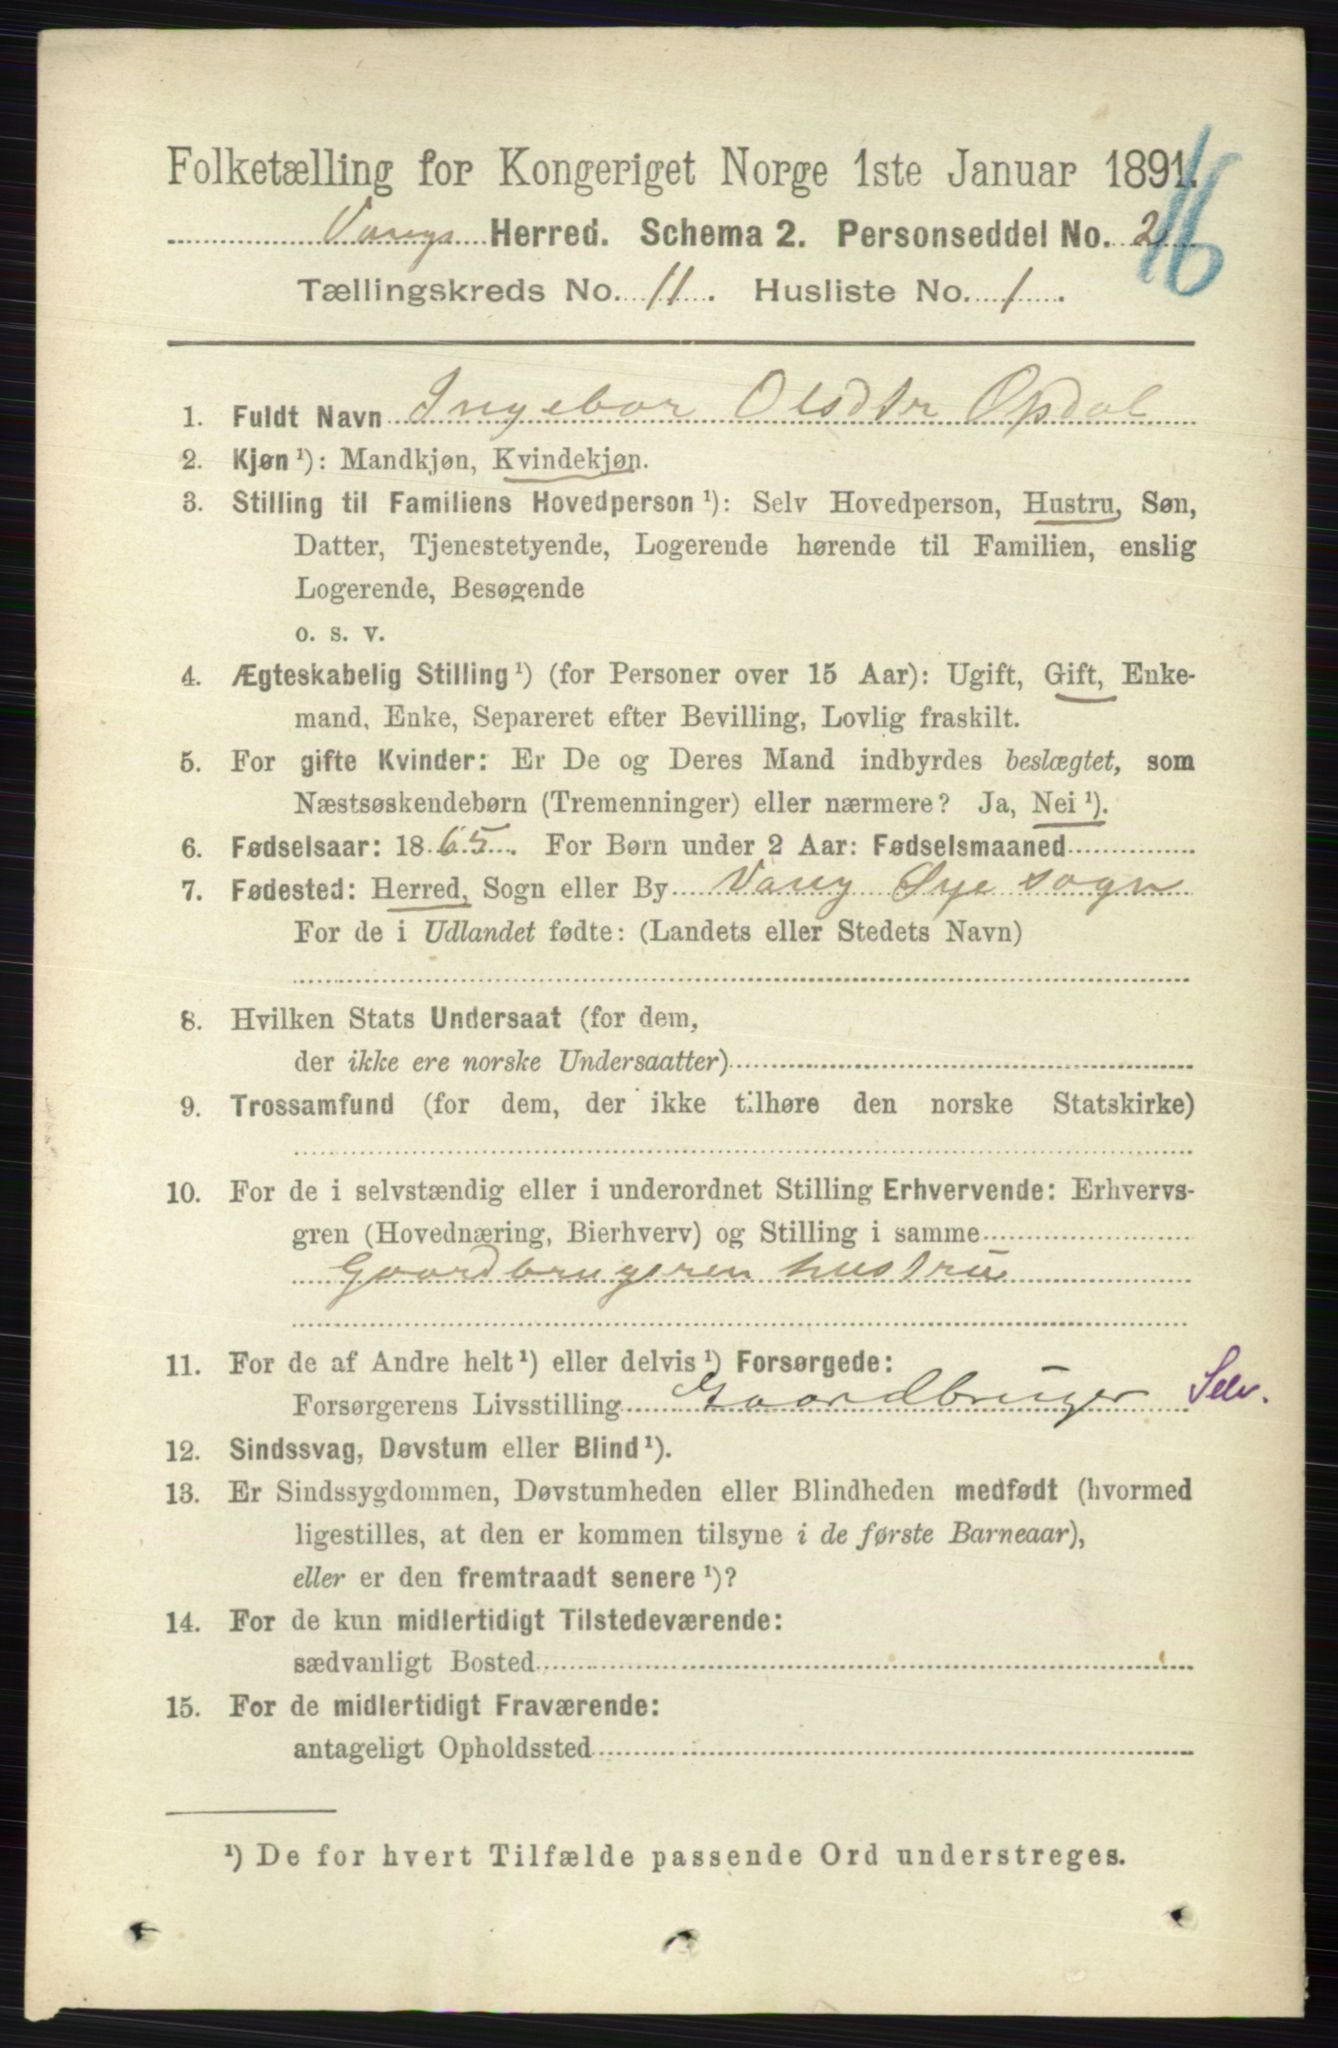 Folketælling for Kongeriget Norge 1ste Januar 1891.
16
Vangs Herred. Schema 2. Personseddel No. 2
Tællingskreds No. 11. Husliste No. 1.
1. Fuldt Navn Ingebor Olsdtr Opdal
2. Kjøn ¹): Mandkjøn, Kvindekjøn.
3. Stilling til Familiens Hovedperson ¹): Selv Hovedperson, Hustru, Søn,
Datter, Tjenestetyende, Logerende hørende til Familien, enslig
Logerende, Besøgende
o. s. v.
4. Ægteskabelig Stilling ¹) (for Personer over 15 Aar): Ugift, Gift, Enke-
mand, Enke, Separeret efter Bevilling, Lovlig fraskilt.
5. For gifte Kvinder: Er De og Deres Mand indbyrdes beslægtet, som
Næstsøskendebørn (Tremenninger) eller nærmere? Ja, Nei ¹).
6. Fødselsaar: 1865. For Børn under 2 Aar: Fødselsmaaned
7. Fødested: Herred, Sogn eller By Vang Øye sogn
For de i Udlandet fødte: (Landets eller Stedets Navn)
8. Hvilken Stats Undersaat (for dem,
der ikke ere norske Undersaatter)
9. Trossamfund (for dem, der ikke tilhøre den norske Statskirke)
10. For de i selvstændig eller i underordnet Stilling Erhvervende: Erhvervs-
gren (Hovednæring, Bierhverv) og Stilling i samme
Gaardbrugeren hustru
11. For de af Andre helt ¹) eller delvis ¹) Forsørgede:
Forsørgerens Livsstilling Gaardbruger Selv.
12. Sindssvag, Døvstum eller Blind ¹).
13. Er Sindssygdommen, Døvstumheden eller Blindheden medfødt (hvormed
ligestilles, at den er kommen tilsyne i de første Barneaar),
eller er den fremtraadt senere ¹)?
14. For de kun midlertidigt Tilstedeværende:
sædvanligt Bosted
15. For de midlertidigt Fraværende:
antageligt Opholdssted
¹) De for hvert Tilfælde passende Ord understreges.